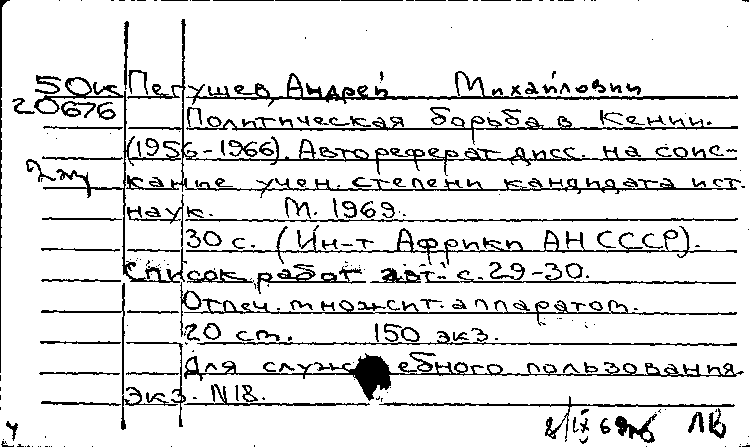 50к Пегушев, Андрей Михайлович
20676
Политическая борьба в Кении.
(1956-1966). Автореферат дисс. на соис-
кание учен. степени кандидата ист.
наук. М. 1969.
30 с. (Ин-т Африки АН СССР).
Список работ авт. с. 29-30.
Отпеч. множит. аппаратом.
20 ст. 150 экз.
Для служебного пользования.
Экз. N18.
8/IX 69 ЛВ
ч